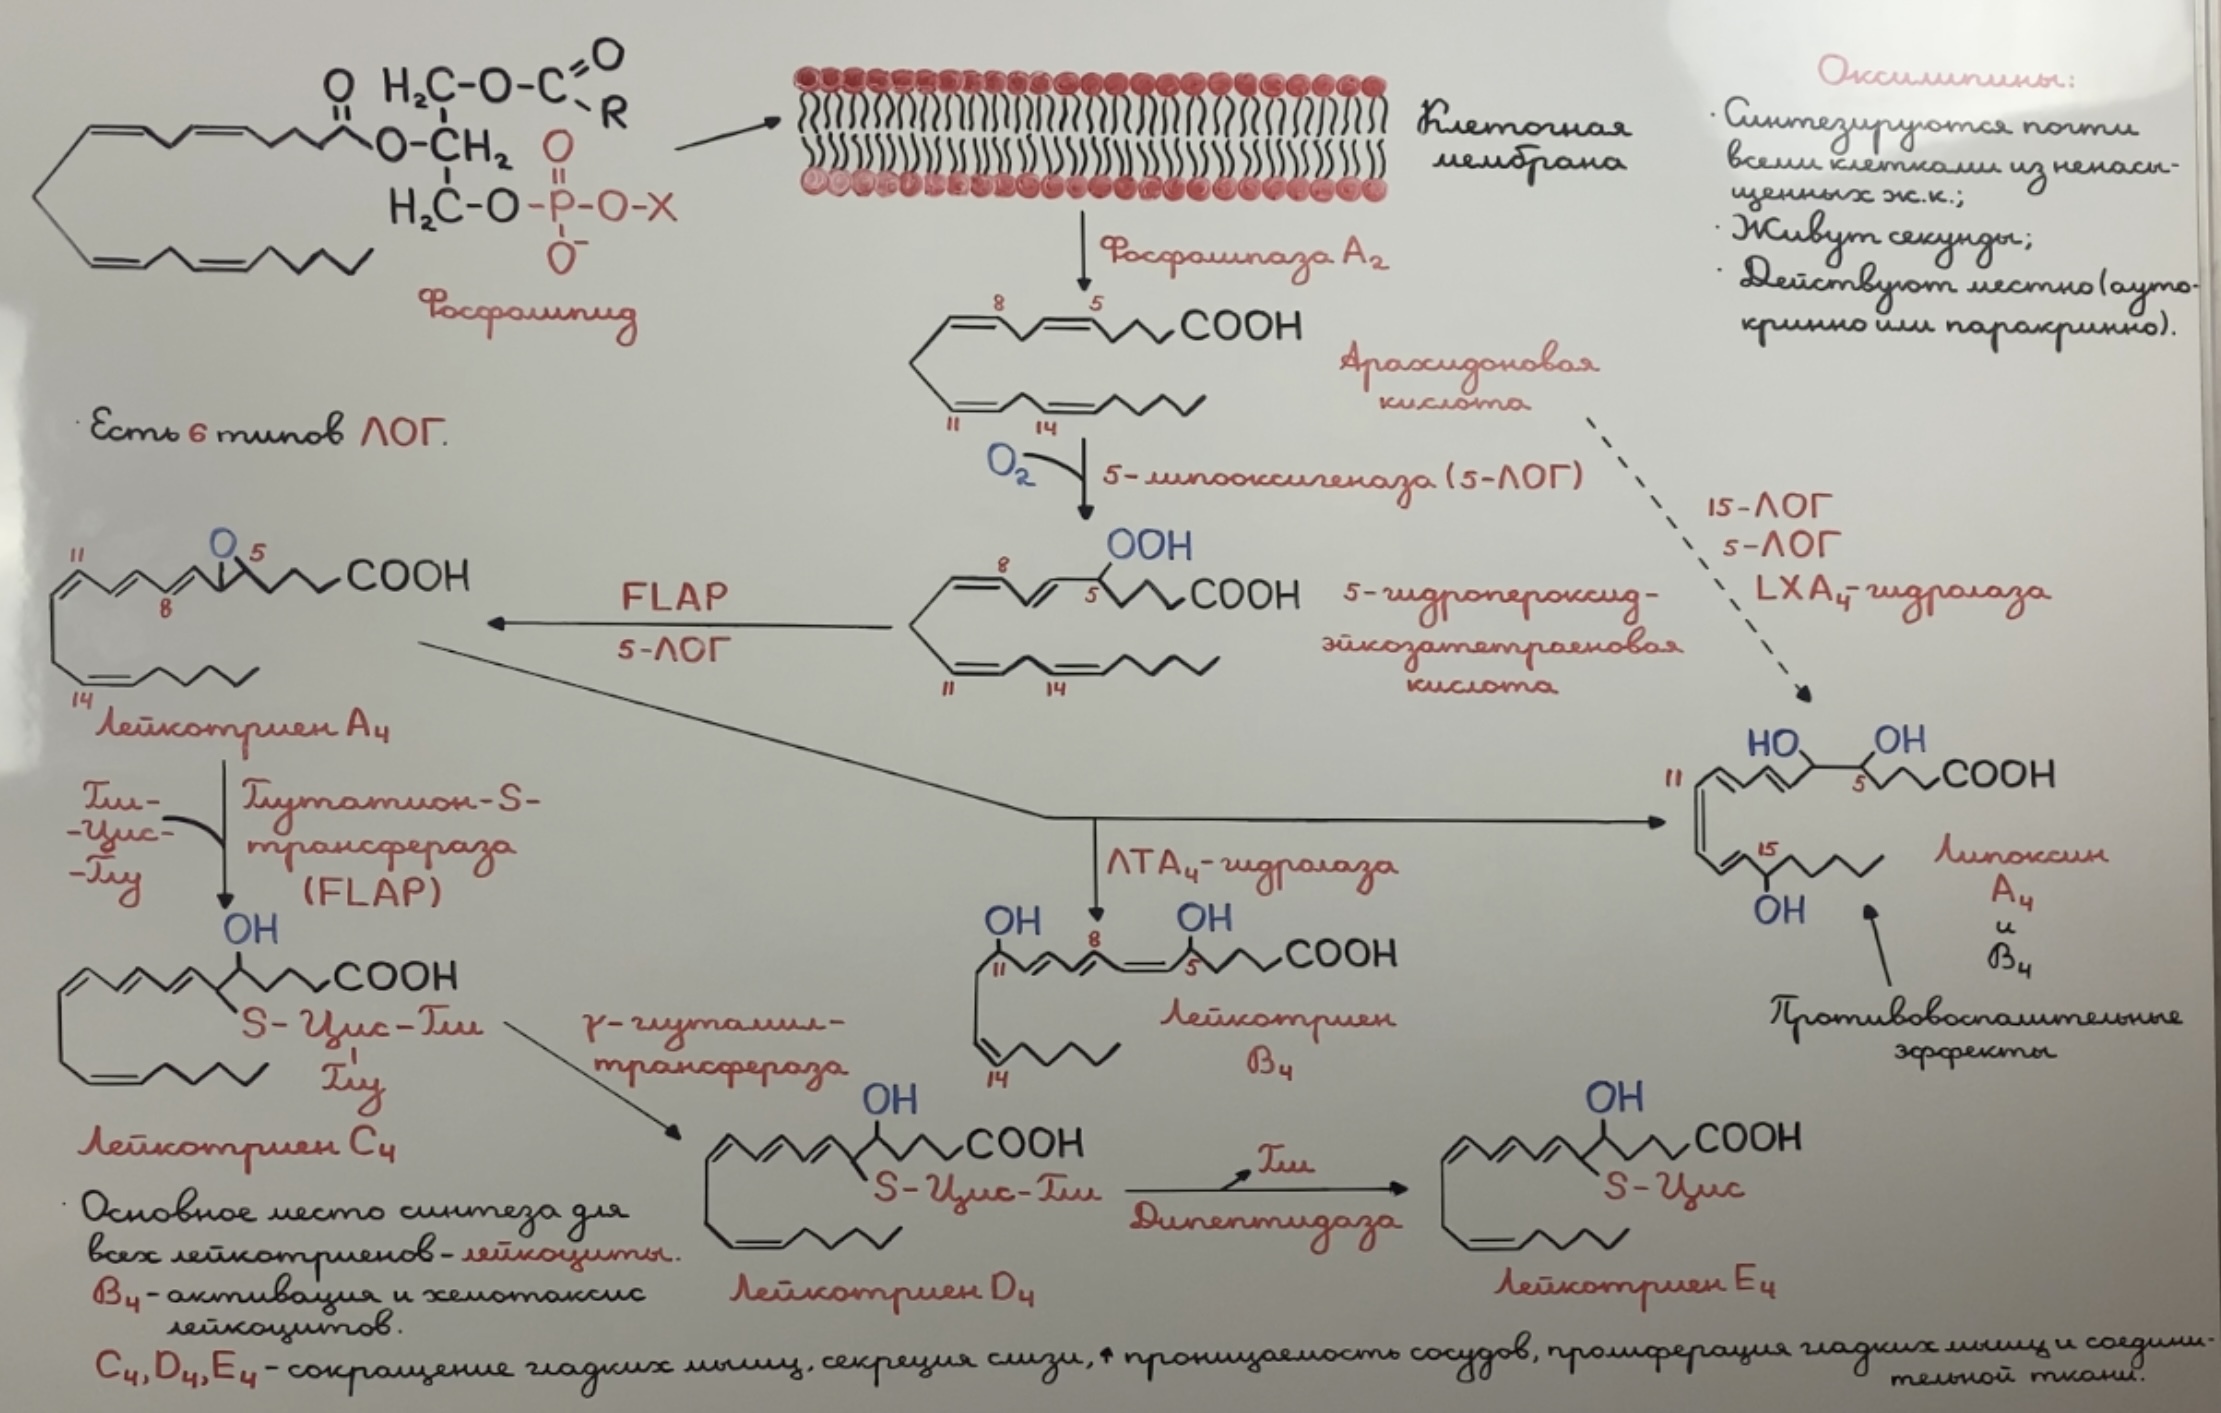 O H₂C-O-C=O
R
O-CH₂
O
H₂C-O-P-O-X
O⁻
Фосфолипид
Клеточная
мембрана
Оксилипины:
· Синтезируются почти
всеми клетками из ненасы-
щенных ж.к.;
· Живут секунды;
· Действуют местно (ауто-
кринно или паракринно).
Фосфолипаза A₂
8 5 COOH
11 14
Арахидоновая
кислота
· Есть 6 типов ЛОГ.
O₂ 5-липооксигеназа (5-ЛОГ)
15-ЛОГ
5-ЛОГ
LXA₄-гидролаза
11 O 5 COOH
8
14
Лейкотриен A₄
FLAP
5-ЛОГ
OOH
8 5 COOH
11 14
5-гидропероксид-
эйкозатетраеновая
кислота
Гли-
-Цис-
-Глу
Глутатион-S-
трансфераза
(FLAP)
ЛТА₄-гидролаза
HO OH
11 5 COOH
15
OH
Липоксин
A₄
и
B₄
Противовоспалительные
эффекты
OH
COOH
S-Цис-Гли
Глу
Лейкотриен C₄
γ-глутамил-
трансфераза
OH OH
11 8 5 COOH
14
Лейкотриен
B₄
OH
COOH
S-Цис-Гли
Лейкотриен D₄
Гли
Дипептидаза
OH
COOH
S-Цис
Лейкотриен E₄
· Основное место синтеза для
всех лейкотриенов-лейкоциты.
B₄-активация и хемотаксис
лейкоцитов.
C₄, D₄, E₄-сокращение гладких мышц, секреция слизи, ↑ проницаемость сосудов, пролиферация гладких мышц и соедини-
тельной ткани.